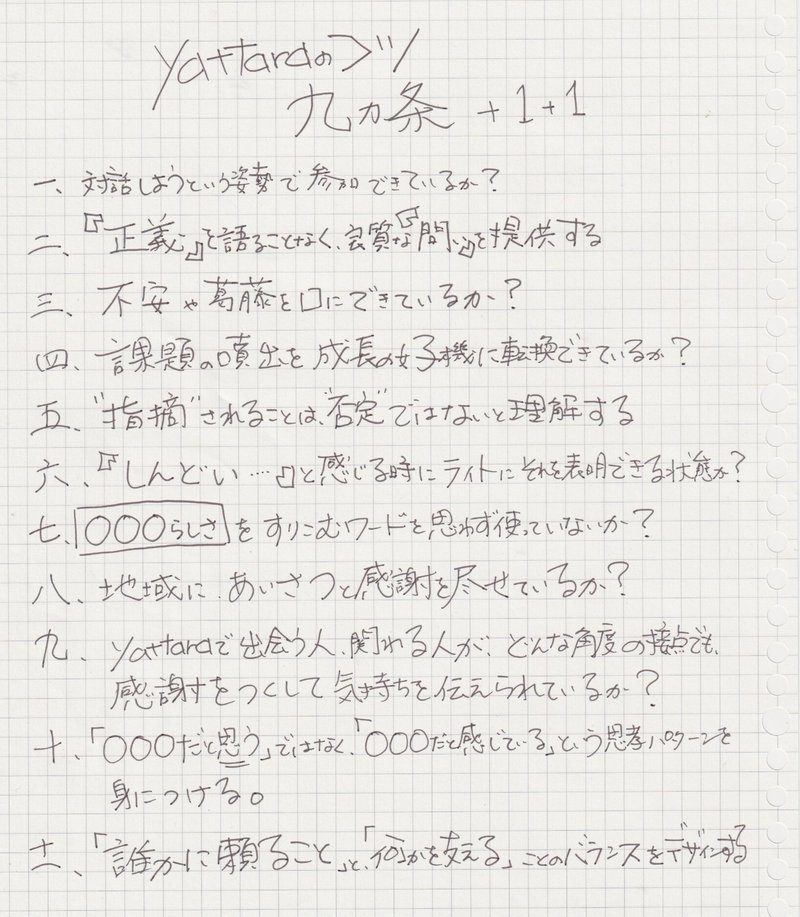 yattaraのコツ
九カ条 +1+1
一、対話しようという姿勢で参加できているか？
二、『正義』を語ることなく、良質な『問い』を提供する
三、不安や葛藤を口にできているか？
四、課題の噴出を成長の好機に転換できているか？
五、"指摘"されることは、"否定"ではないと理解する
六、『しんどい…』と感じる時にライトにそれを表明できる状態か？
七、〇〇〇らしさをすりこむワードを思わず使っていないか？
八、地域に、あいさつと感謝を尽せているか？
九、yattaraで出会う人、関わる人が、どんな角度の接点でも、
感謝をつくして気持ちを伝えられているか？
十、「〇〇〇だと思う」ではなく、「〇〇〇だと感じている」という思考パターンを
身につける。
十一、「誰かに頼ること」と、「何かを支える」ことのバランスをデザインする